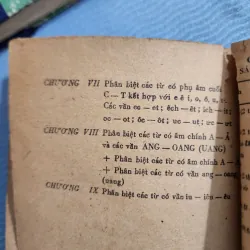 CHƯƠNG VII Phân biệt các từ có phụ âm cuối
C — T kết hợp với e ê i, o, ô, u, ư.
Các vần ec — et; êch — êt; ich — it;
oc — ot; ôc — ôt; uc — ut; ưc — ưt
CHƯƠNG VIII Phân biệt các từ có âm chính A — Ă
và các vần ÀNG — OANG (UANG)
+ Phân biệt các từ có âm chính A —
+ Phân biệt các từ có vần ang — oang
(uang)
CHƯƠNG IX Phân biệt các từ có vần in — iên —
SÁ